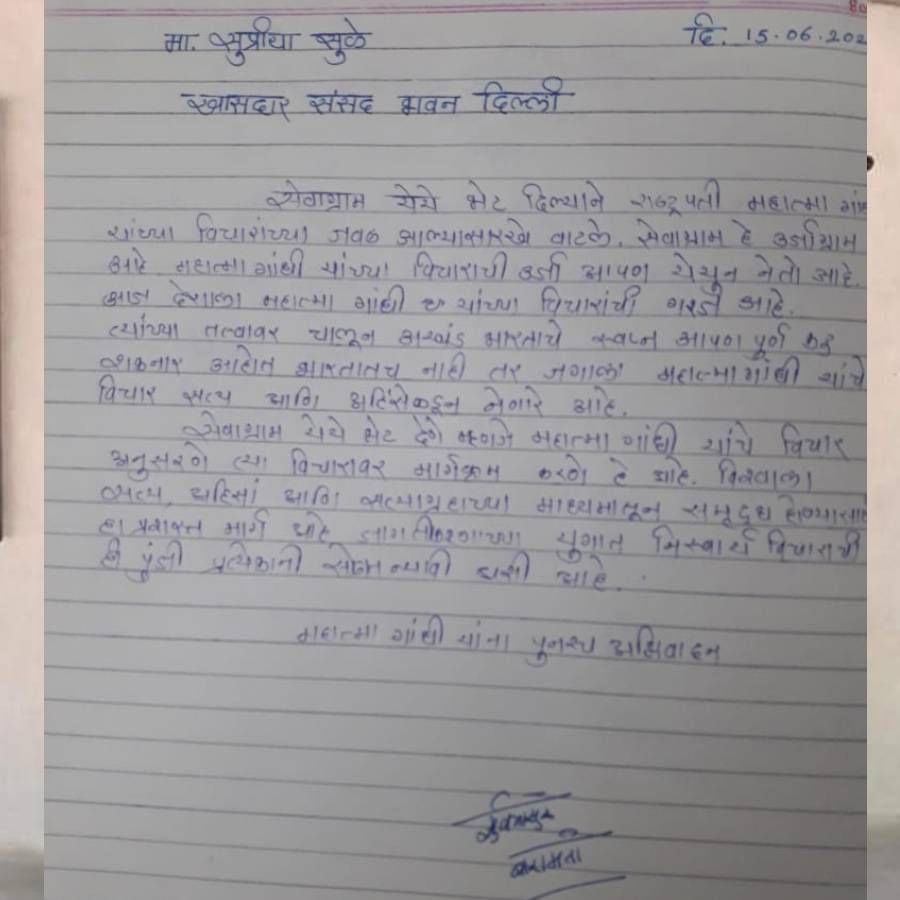 मा. सुप्रीया सुळे दि. 15.06.202
खासदार संसद भवन दिल्ली
सेवाग्राम येथे भेट दिल्याने राष्ट्रपती महात्मा गां
यांच्या विचारांच्या जवळ आल्यासारखे वाटले. सेवाग्राम हे उर्जाग्राम
आहे महात्मा गांधी यांच्या विचाराची उर्जा आपण येथुन नेतो आहे.
आज देशाला महात्मा गांधी यांच्या विचारांची गरज आहे.
त्यांच्या तत्वावर चालून अखंड भारताचे स्वप्न आपण पूर्ण करु
शकनार आहोत भारतातच नाही तर जगाला महात्मा गांधी यांचे
विचार सत्य आणि अहिंसेकडून नेणारे आहे.
सेवाग्राम येथे भेट देणे म्हणजे महात्मा गांधी यांचे विचार
अनुसरणे त्या विचारावर मार्गक्रम करणे हे आहे. विश्वाला
सत्य अहिसां आणि सत्याग्रहाच्या माध्यमातून समृद्ध होण्यासा
हा प्रशस्त मार्ग आहे जागतीकरणाच्या युगात निस्वार्थ विचाराची
ही पुंजी प्रत्येकानी सोबत न्यावी अशी आहे.
महात्मा गांधी यांना पुनश्च अभिवादन
बारामती